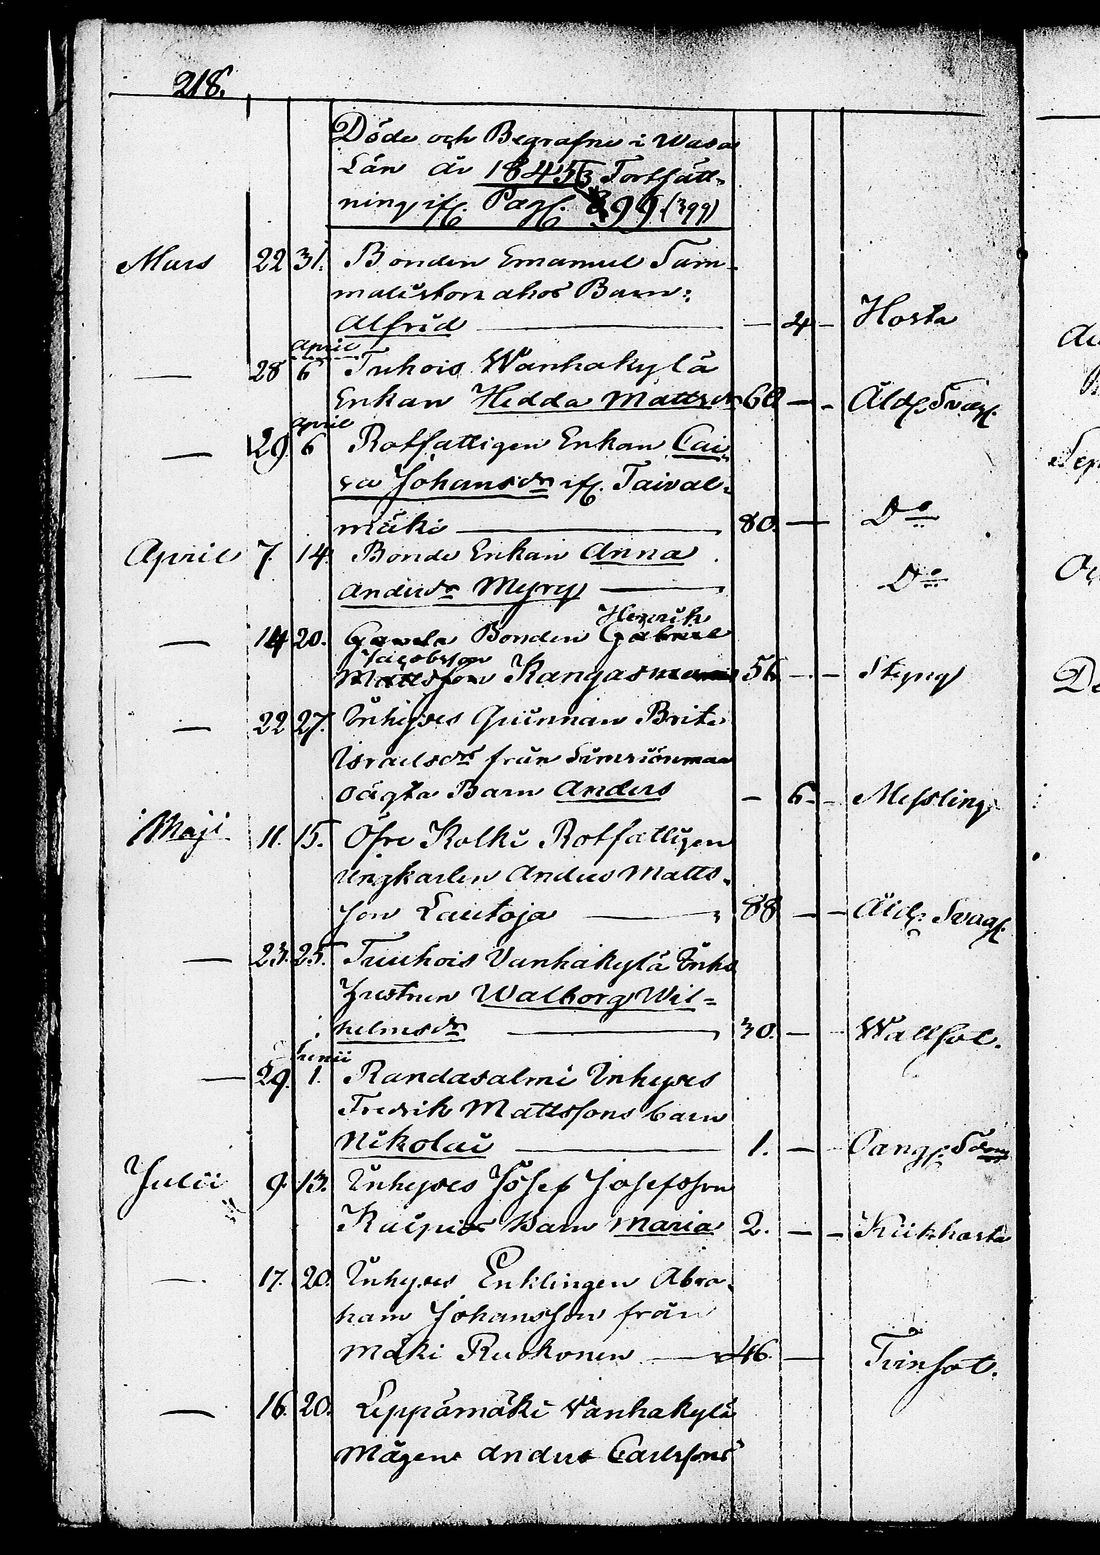 218.
Döde och Begrafne i Wasa
Län år 1845 Fortsätt-
ning ifr. Pag. 399 (399)
Mars 22 31. Bonden Emanuel Tam-
mats Barn:
Alfrid — 4 — Hosta
— 28 April 6 Tuhois Wanhakylä
Enkan Hedda Mattsdr 60 — Åld.
— 29 April 6 Rotfattigen Enkan Cai-
sa Johansdr ifr. Taival-
mäki — 80. — Do
April 7. 14. Bonde Enkan Anna
Andersdr Myry — Do
— 14 20. Gamla Bonden Henrik Gabriel
Jacobsson Mattsson Kangas 56 — Styng
— 22 27. Inhyses Quinnan Brita
Israelsdrs från
oägta Barn Anders — 6 — Messling
Maji 11. 15. Öfre Kolki Rotfattigen
ungkarlen Anders Matts-
son Lautoja — 88 — Åld. Svagh.
— 23. 25. Tuuhois Vanhakylä Inhs
Hustrun Walborg Wil-
helmsdr — 30. — Wattsot.
— 29. Junii 1. Randasalmi Inhyses
Fredrik Mattssons barn
Nikolai — 1. —
Julii 9. 13. Inhyses Josef Josefsson
Barn Maria 2. — Kikhosta
— 17. 20. Inhyses Enklingen Abra-
ham Johansson från
Mäki Ruokonen — 46. — Tvinsot.
— 16. 20. Leppämäki Vanhakylä
Mågen Anders Carlsons